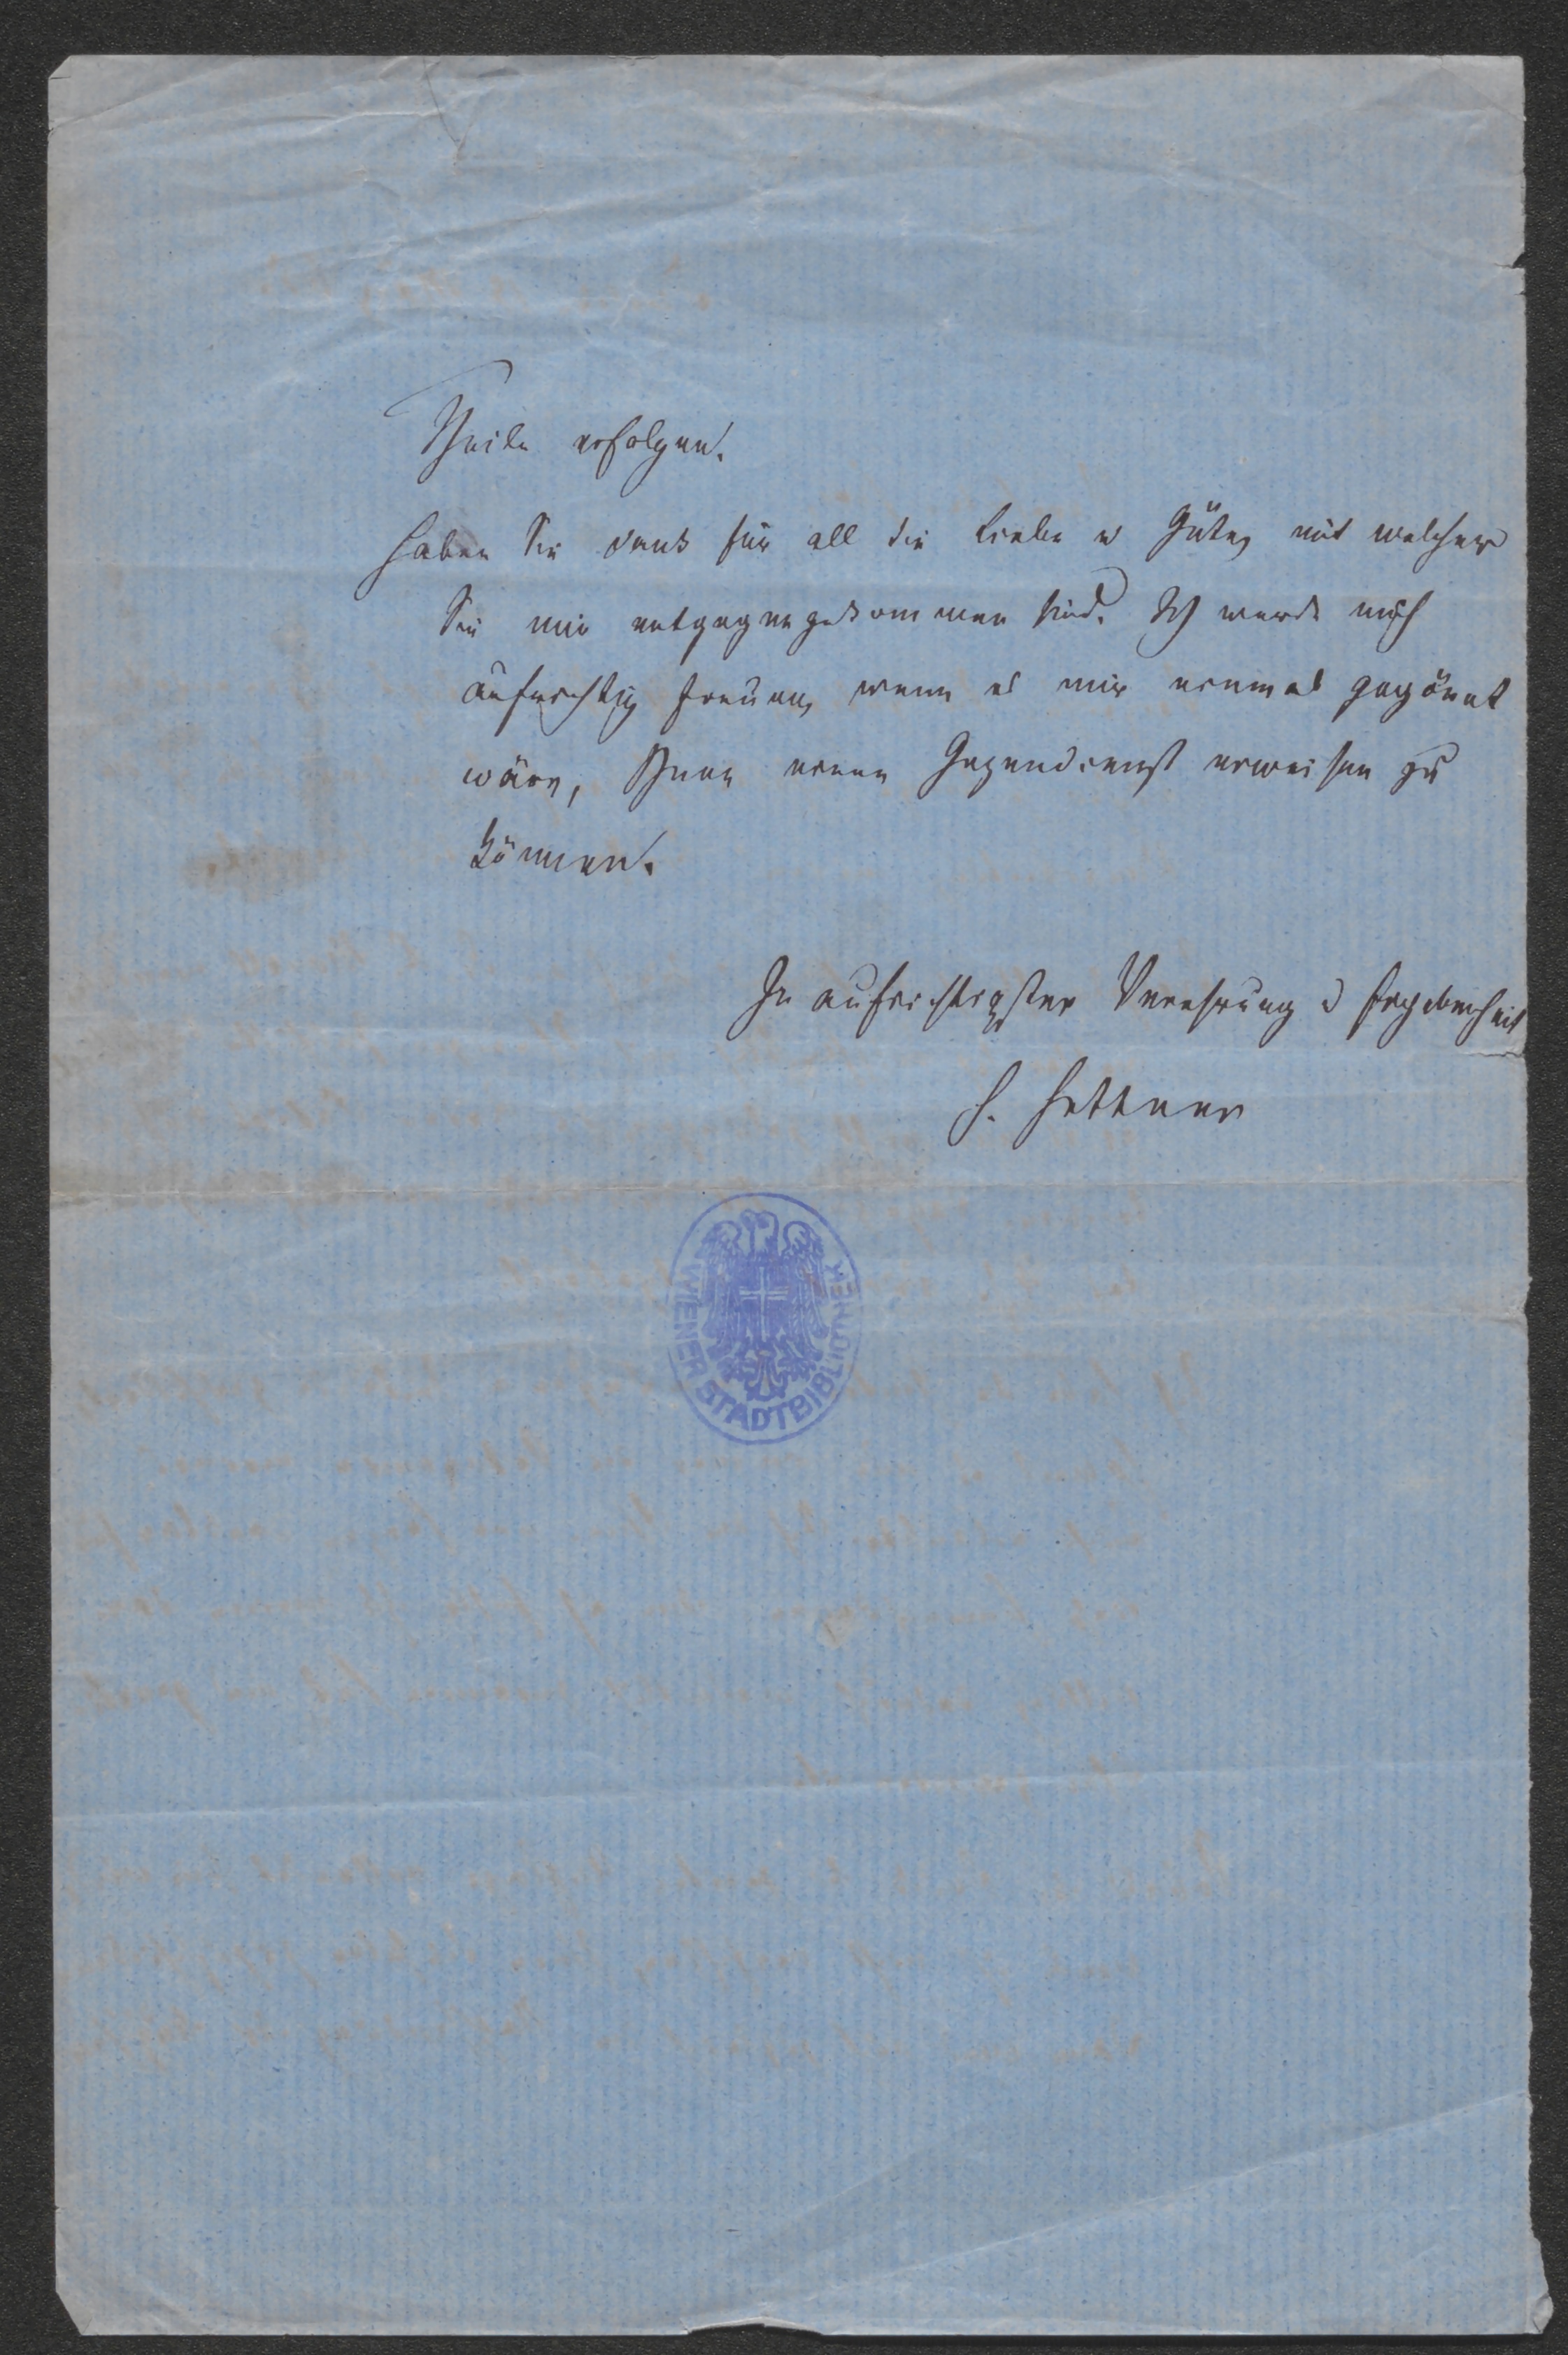 Theile erfolgen.
Haben Sie Dank für all die Liebe u Güte, mit welcher
Sie mir entgegengekommen sind. Ich werde mich
aufrichtig freuen, wenn es mir einmal gegönnt
wäre, Ihnen einen Gegendienst erweisen zu
können.
In aufrichtigster Verehrung u Ergebenheit
H. Hettner
WIENER STADTBIBLIOTHEK